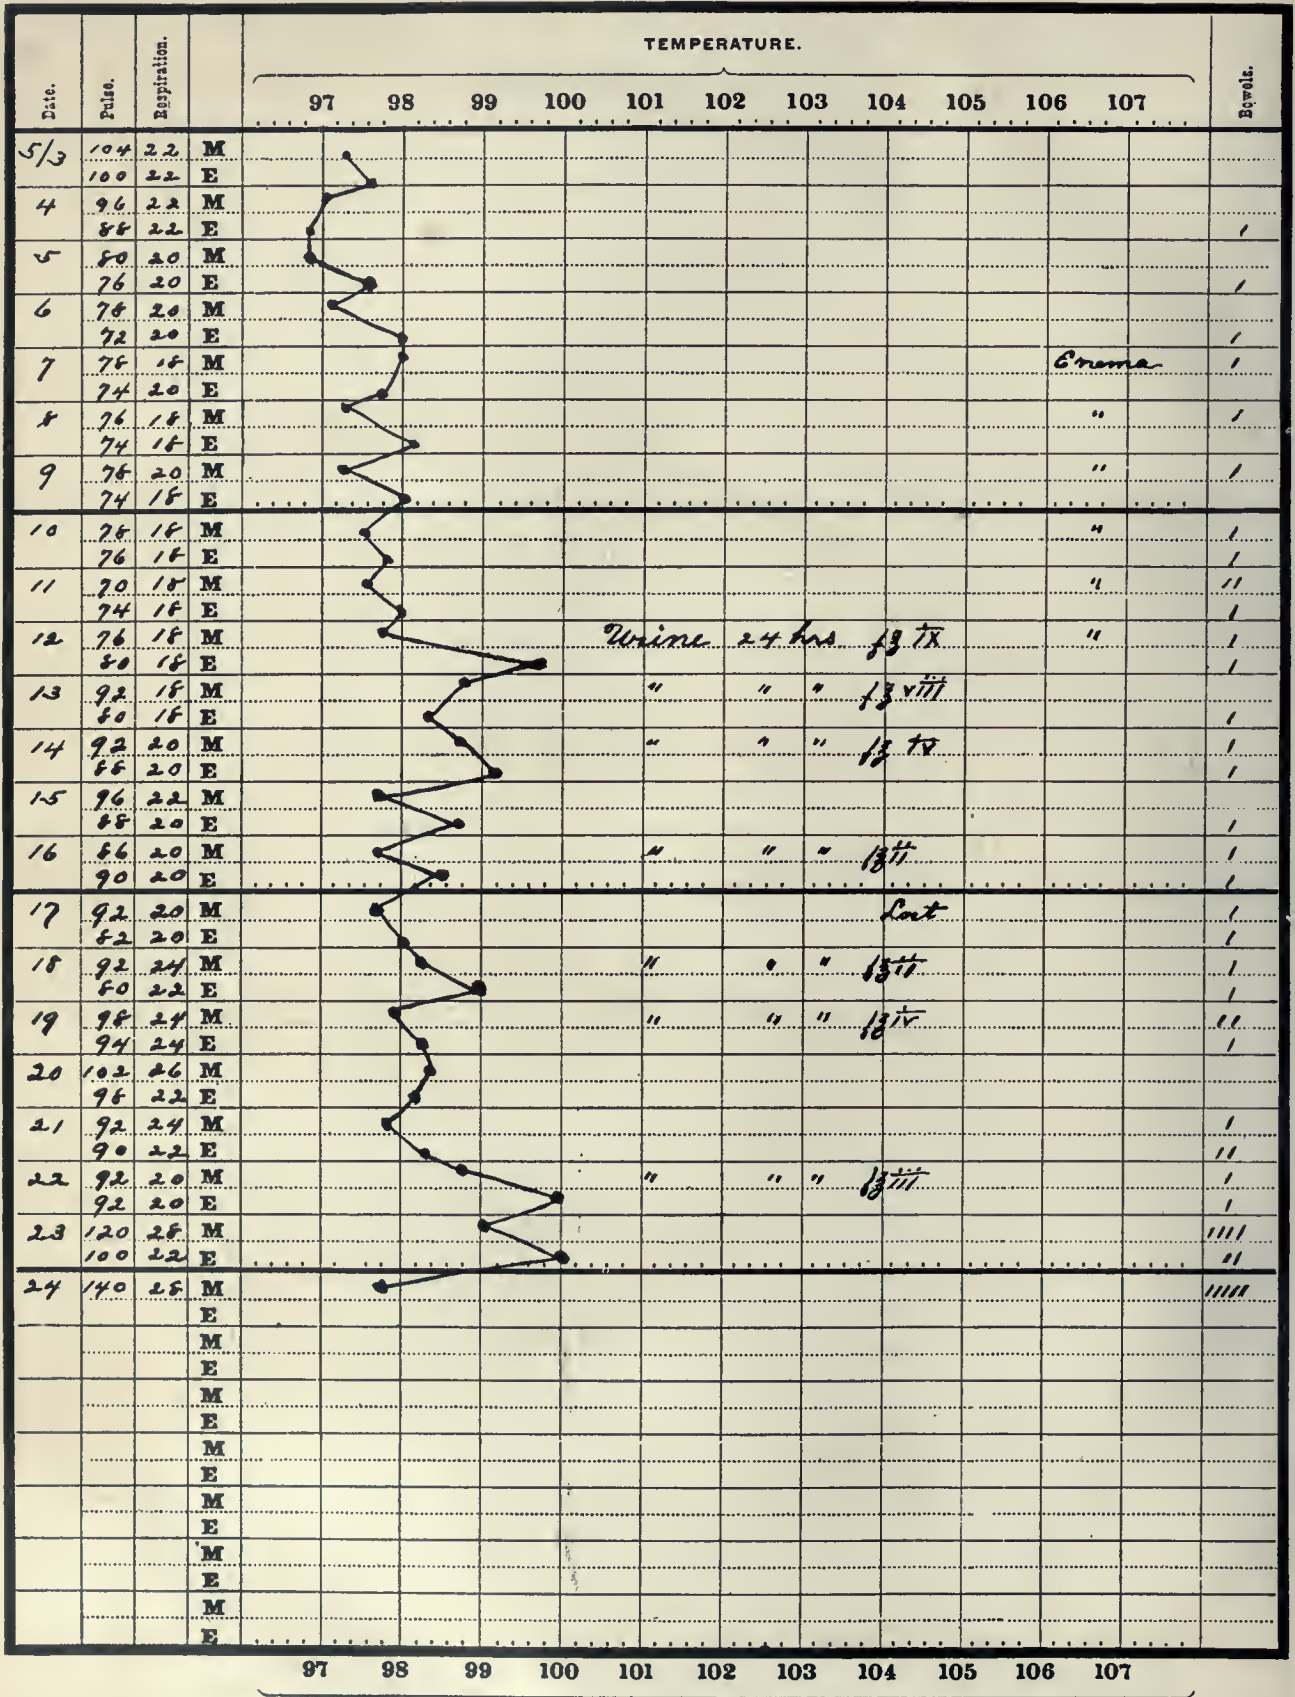 TEMPERATURE.
Date. Pulse. Respiration. 97 98 99 100 101 102 103 104 105 106 107 Bowels.
5/3 104 22 M
100 22 E
4 96 22 M
88 22 E 1
5 80 20 M
76 20 E 1
6 78 20 M
72 20 E 1
7 78 18 M Enema 1
74 20 E
8 76 18 M " 1
74 18 E
9 78 20 M " 1
74 18 E
10 78 18 M " 1
76 18 E 1
11 70 18 M " 11
74 18 E 1
12 76 18 M Urine 24 hrs f℥ ix " 1
80 18 E 1
13 92 18 M " " " f℥ viii
80 18 E 1
14 92 20 M " " " f℥ iv 1
88 20 E 1
15 96 22 M
88 20 E 1
16 86 20 M " " " f℥ii 1
90 20 E 1
17 92 20 M Lost 1
82 20 E 1
18 92 24 M " " " f℥ii 1
80 22 E 1
19 98 24 M " " " f℥iv 11
94 24 E 1
20 102 26 M
98 22 E
21 92 24 M 1
90 22 E 11
22 92 20 M " " " f℥iii 1
92 20 E 1
23 120 28 M 1111
100 22 E 11
24 140 28 M 11111
E
M
E
M
E
M
E
M
E
M
E
M
E
97 98 99 100 101 102 103 104 105 106 107